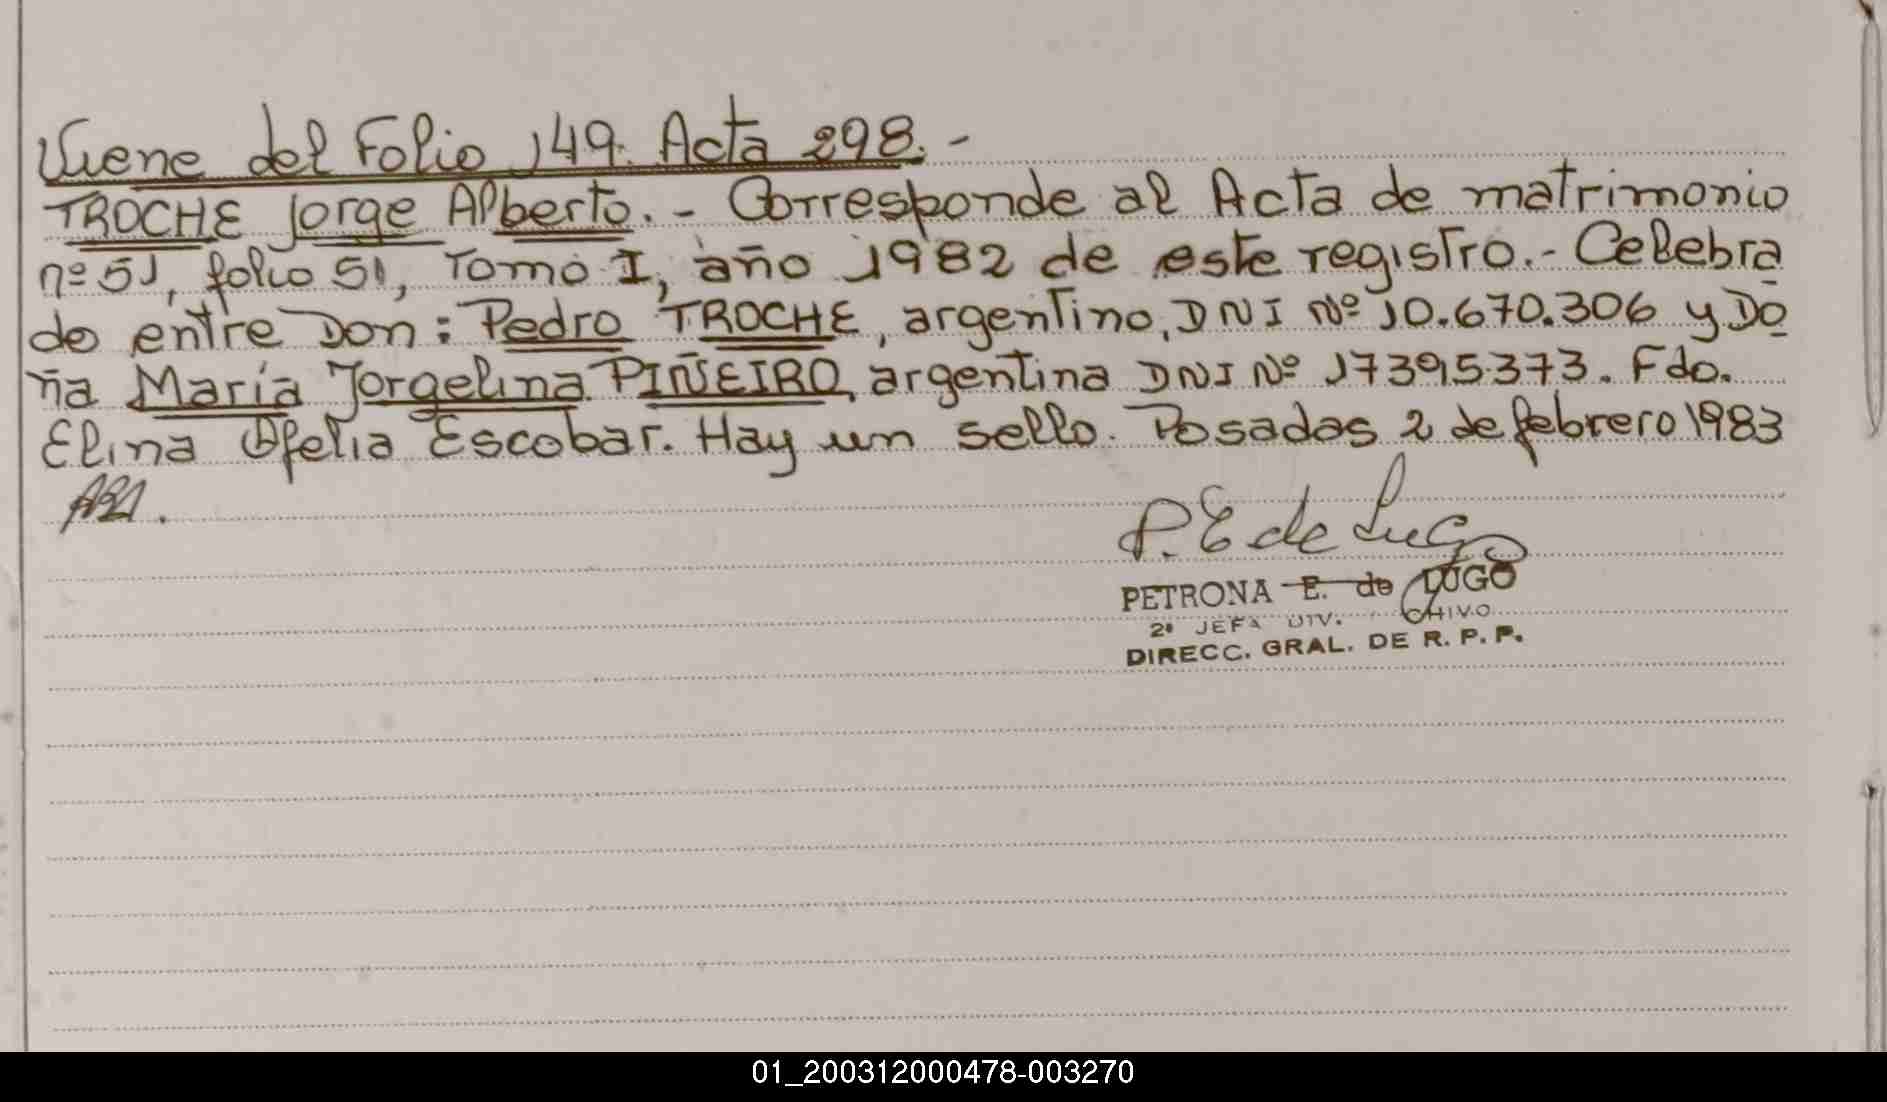 Viene del Folio 149. Acta 298.-
TROCHE Jorge Alberto.- Corresponde al Acta de matrimonio
nº 51, folio 51, Tomo I, año 1982 de este registro.- Celebra
do entre Don: Pedro TROCHE, argentino, DNI Nº 10.670.306 y Do
ña María Jorgelina PIÑEIRO, argentina DNI Nº 17395373. Fdo.
Elina Ofelia Escobar. Hay un sello. Posadas 2 de febrero 1983
P. E de Lugo
PETRONA E. de LUGO
2º JEFA DIV. CHIVO
DIRECC. GRAL. DE R. P. P.
01_200312000478-003270